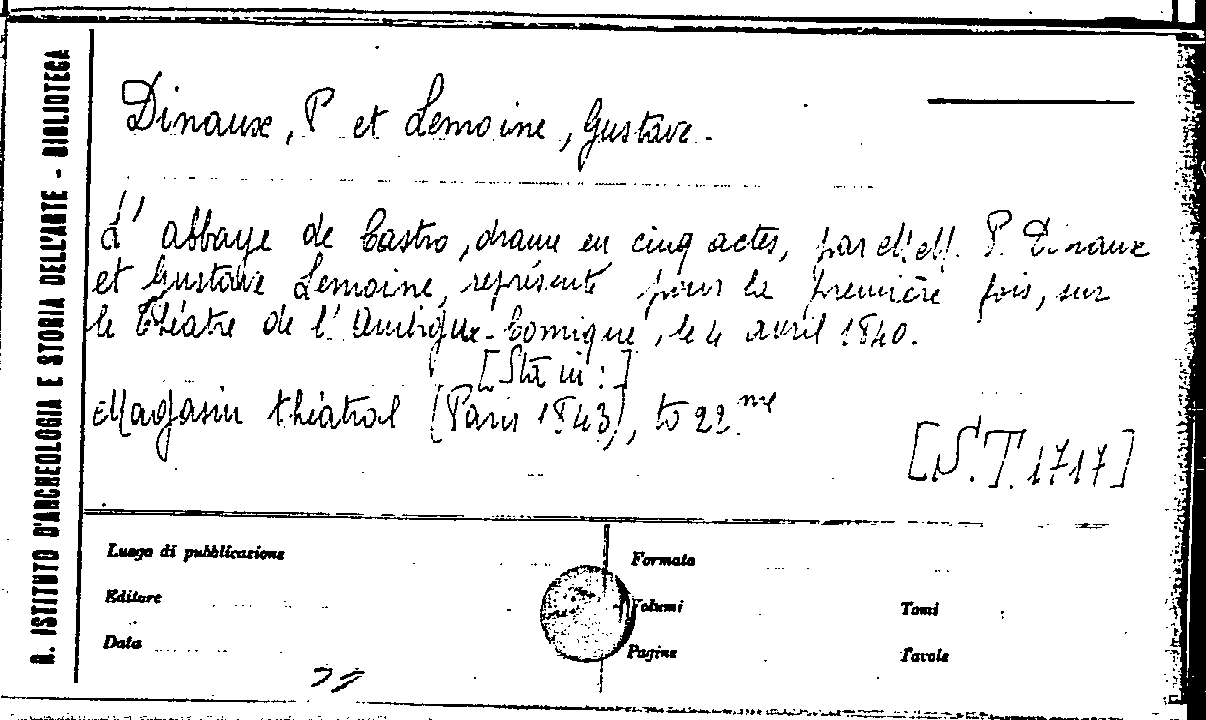 R. ISTITUTO D'ARCHEOLOGIA E STORIA DELL'ARTE - BIBLIOTECA
Dinaux, P et Lemoine, Gustave.
L'abbaye de Castro, drame en cinq actes, par M.M. P. Dinaux
et Gustave Lemoine, représenté pour la première fois, sur
le Théatre de l'Ambigu-Comique, le 4 avril 1840.
[Sta in:]
Magasin théatral (Paris 1843), to 22.me
[S.T. 1717]
Luogo di pubblicazione
Formato
Editore
Volumi
Tomi
Data
Pagine
Tavole